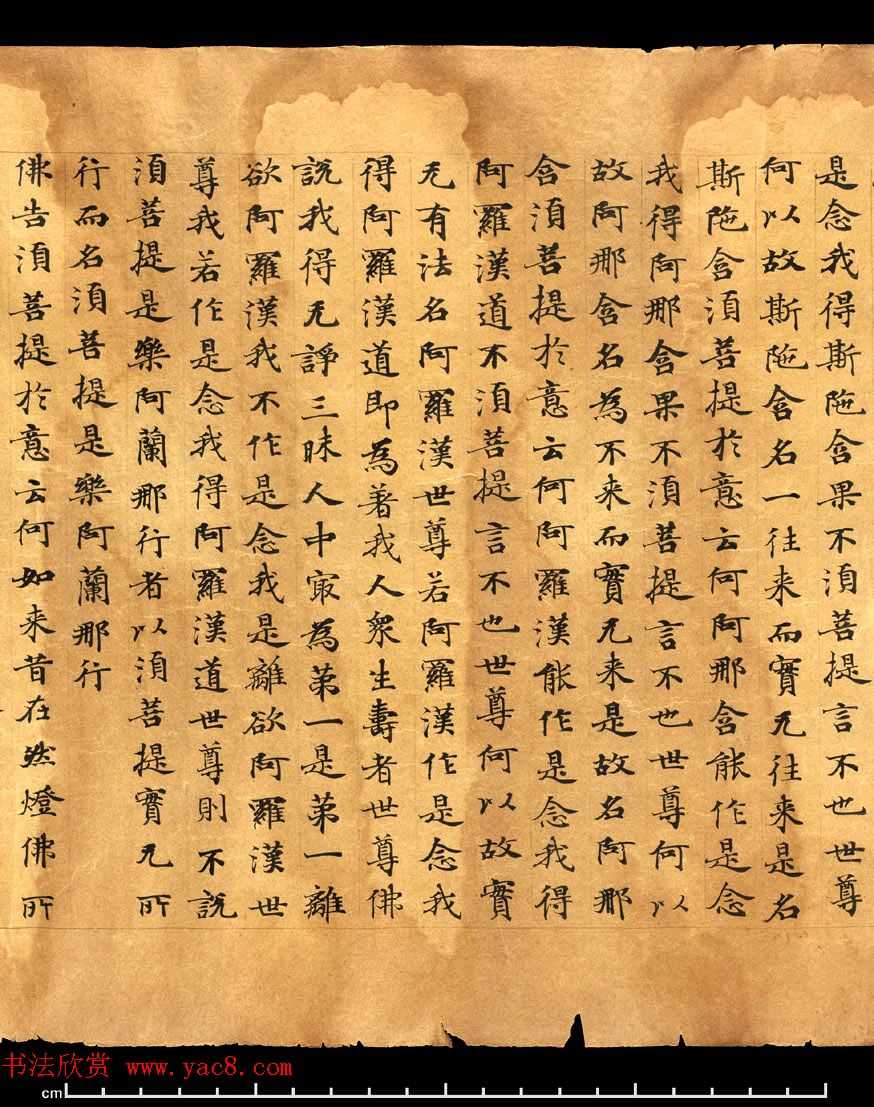 是念我得斯陁含果不湏菩提言不也世尊
何以故斯陁含名一往来而實无往来是名
斯陁含湏菩提於意云何阿那含能作是念
我得阿那含果不湏菩提言不也世尊何以
故阿那含名為不来而實无来是故名阿那
含湏菩提於意云何阿羅漢能作是念我得
阿羅漢道不湏菩提言不也世尊何以故實
无有法名阿羅漢世尊若阿羅漢作是念我
得阿羅漢道即為著我人衆生壽者世尊佛
説我得无諍三昧人中冣為苐一是苐一離
欲阿羅漢我不作是念我是離欲阿羅漢世
尊我若作是念我得阿羅漢道世尊則不説
湏菩提是樂阿蘭那行者以湏菩提實无所
行而名湏菩提是樂阿蘭那行
佛告湏菩提於意云何如来昔在然燈佛所
书法欣赏 www.yac8.com
cm